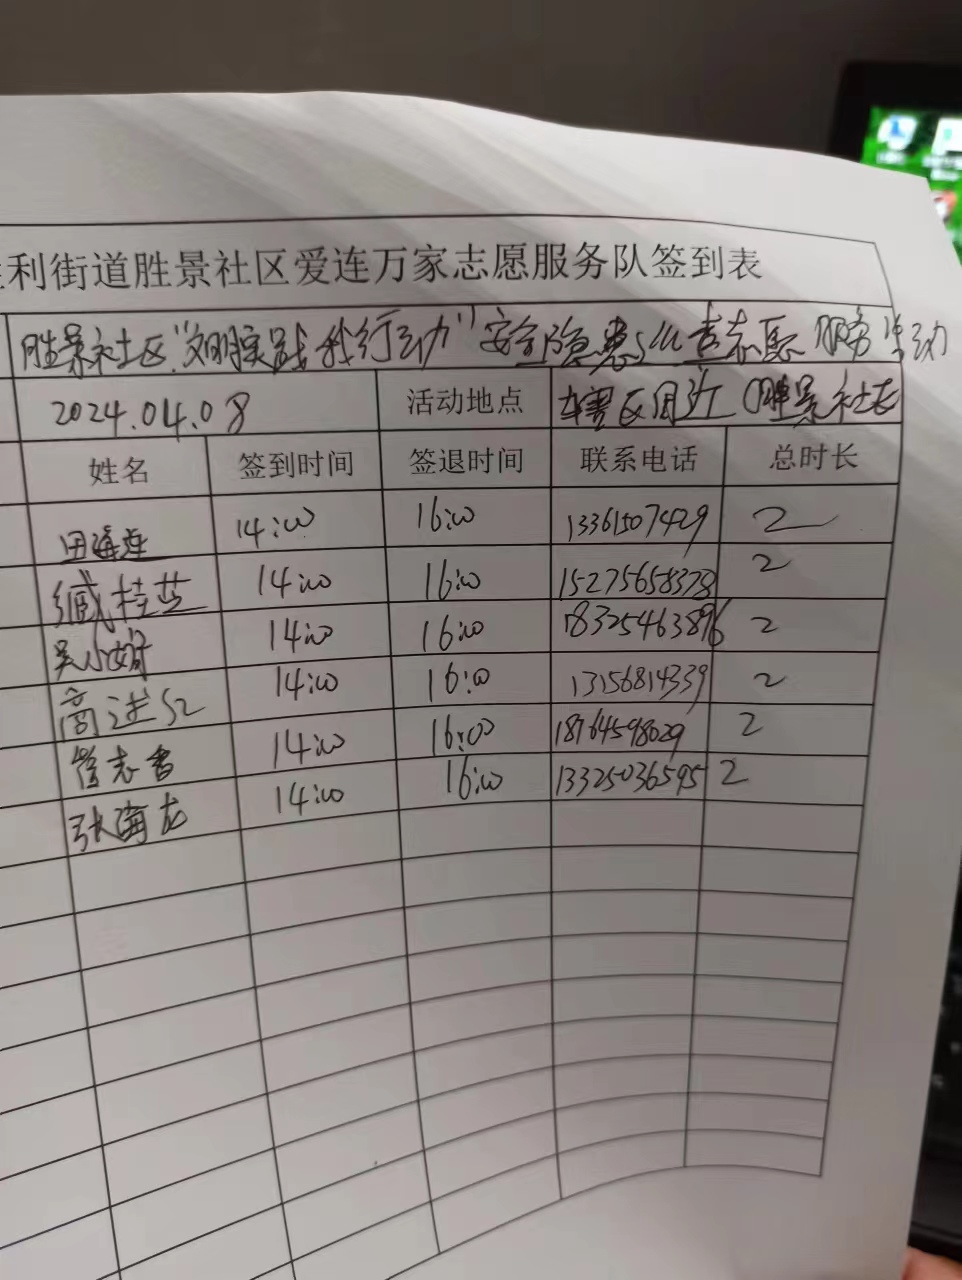 利街道胜景社区爱连万家志愿服务队签到表
胜景社区"文明实践我行动"安全隐患排查志愿服务活动
2024.04.08 活动地点 辖区周边 胜景社区
姓名 签到时间 签退时间 联系电话 总时长
田海莲 14:00 16:00 13361507429 2
臧桂芝 14:00 16:00 15275658378 2
吴小娟 14:00 16:00 18325463896 2
高进红 14:00 16:00 13156814339 2
管志香 14:00 16:00 18764598029 2
张海龙 14:00 16:00 13325036595 2